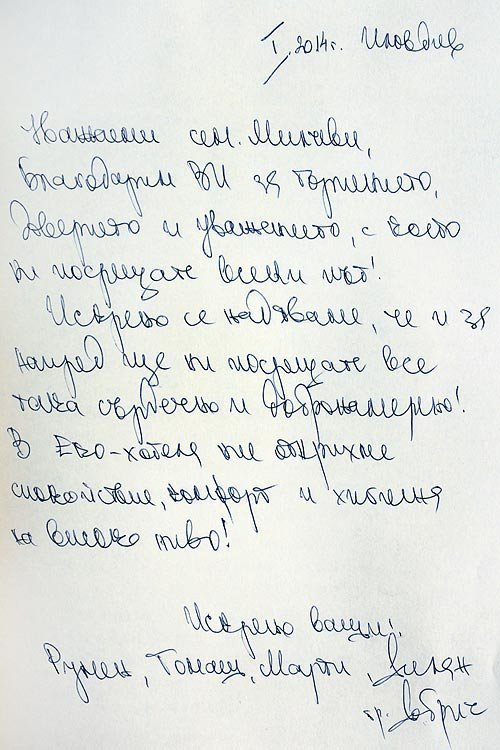 I, 2014г. Пловдив
Уважаеми сем. Минчеви,
Благодарим Ви за
доверието и уважението, с което
ни посрещате всеки път!
Искрено се надяваме, че и за
напред ще ни посрещате все
така сърдечно и добронамерено!
В Ево-хотела ние открихме
спокойствие, комфорт и хигиена
на високо ниво!
Искрено ваши:
Румен, Томаш, Марти,
гр. Добрич